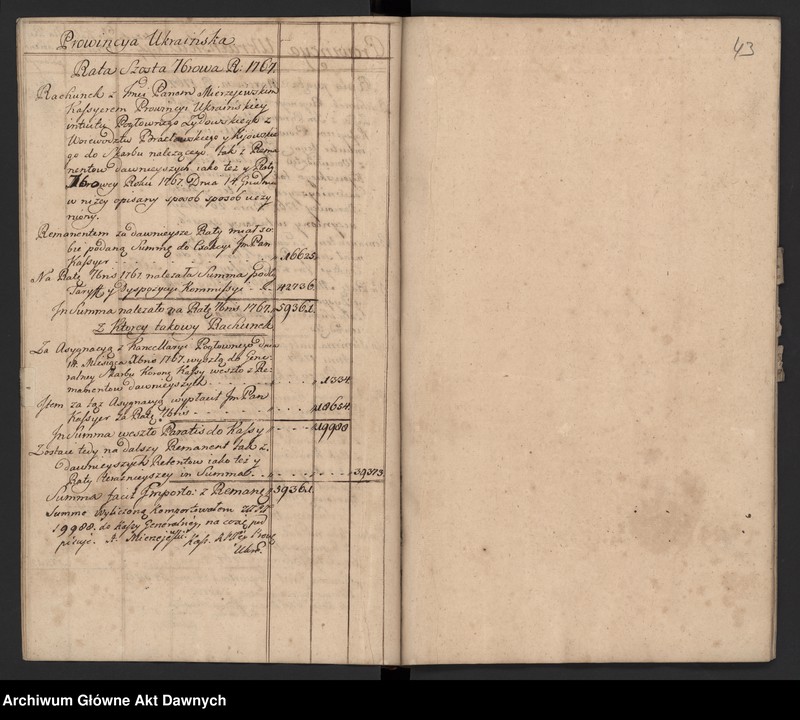 Prowincya Ukraińska
Rata Szosta 7browa R: 1767.
Rachunek z Jmci Panem Mierzejewskim
Kassyerem Prowincyi Ukraińskiey
intuitu Pogłownego Zydowskiego z
Woiewodztw Bracławskiego y Kijowskie
go do Skarbu nalezącego tak z Rema
nentow dawnieyszych iako też y Raty
7browey Roku 1767. Dnia 14 Grudnia
w niżey opisany sposob sposob uczy
niony.
Remanentem za dawnieysze Raty miał so-
bie podaną Summę do Exakcyi Jm Pan
Kassyer 16625.
Na Ratę 7bris 1767 należała Summa podług
Taryff y Dyspozycyi Kommissyi 42736.
In Summa należało na Ratę 7bris 1767. 59361.
Z Ktorey takowy Rachunek
Za Asygnacyą z Kancellaryi Pogłownego dnia
14. Miesiąca Xbra 1767. wyszłą do Gene-
ralney Skarbu Koronº Kassy weszło z Re-
manentow dawnieyszych 1334
Item za taż Asygnacyą wypłacił Jm Pan
Kassyer za Ratę 7bris 18654.
In Summa weszło Paratis do Kassy 19988
Zostaie tedy na dalszy Remanent tak z
dawnieyszych Retentow iako też y
Raty teraznieyszey in Summa 39373.
Summa facit Importo: z Remanen 59361.
Summę Wyliczoną Komportowałem
19988. do Kassy Generalney, na co się pod
pisuję. A. Mierzejewski Kass. Prow.
Ukra.
43
Archiwum Główne Akt Dawnych